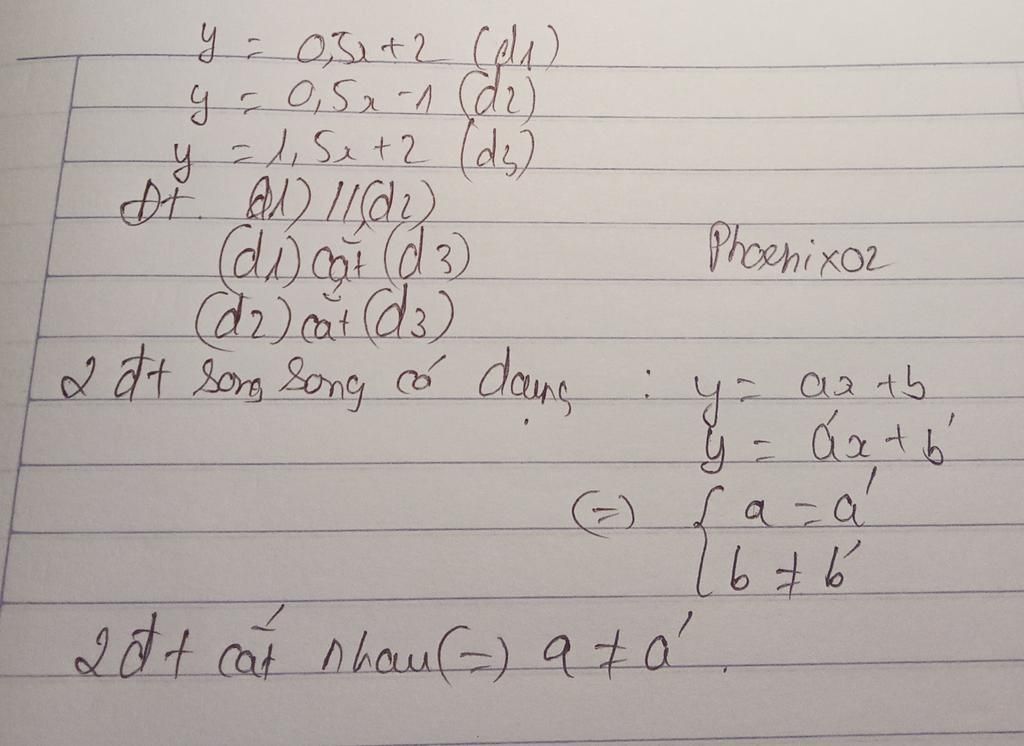 y = 0,5x+2 (d1)
y = 0,5x-1 (d2)
y = 1,5x+2 (d3)
Đt. (d1) // (d2)
(d1) cắt (d3)
Phoenix02
(d2) cắt (d3)
2 đt song song có dạng : y = ax+b
y = a'x+b'
(=) { a = a'
b ≠ b'
2 đt cắt nhau (=) a ≠ a'.